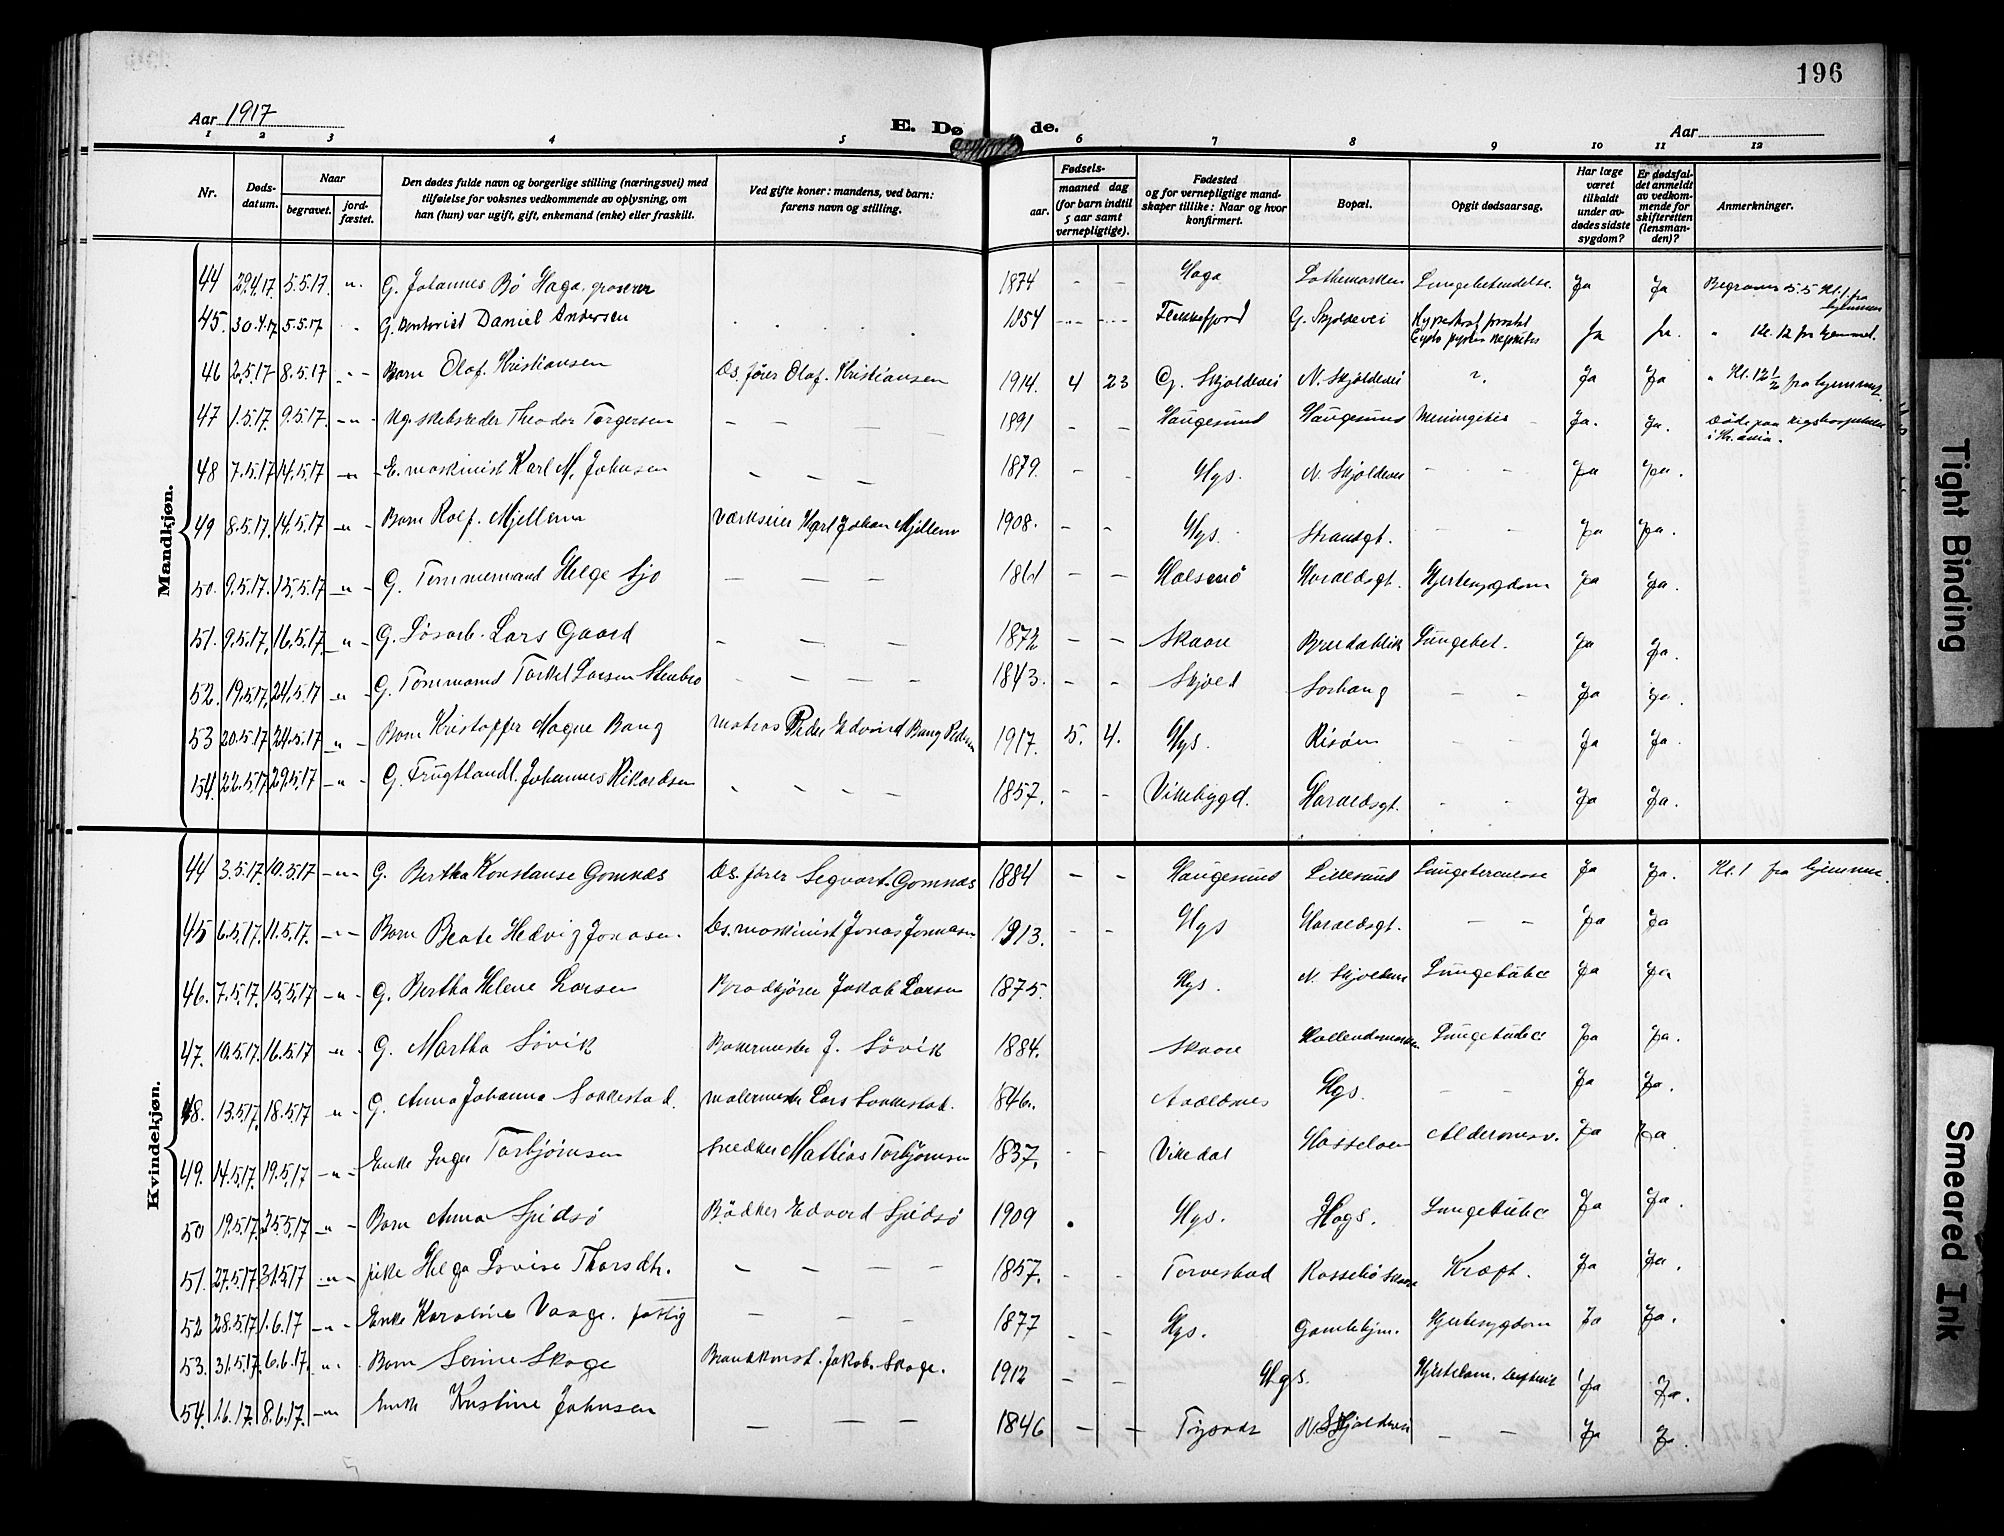 196
Aar 1917
E. Dø de.
Aar
1 2 3 4 5 6 7 8 9 10 11 12
Nr.
Døds-
datum.
Naar
begravet.
jord-
fæstet.
Den dødes fulde navn og borgerlige stilling (næringsvei) med
tilføielse for voksnes vedkommende av oplysning, om
han (hun) var ugift, gift, enkemand (enke) eller fraskilt.
Ved gifte koner: mandens, ved barn:
farens navn og stilling.
Fødsels-
aar.
maaned dag
(for barn indtil
5 aar samt
vernepligtige).
Fødested
og for vernepligtige mand-
skaper tillike: Naar og hvor
konfirmert.
Bopæl.
Opgit dødsaarsag.
Har læge
været
tilkaldt
under av-
dødes sidste
sygdom?
Er dødsfal-
det anmeldt
av vedkom-
mende for
skifteretten
(lensman-
den)?
Anmerkninger.
Mandkjøn.
44 29.4.17 5.5.17. -"- G. Johannes Bø Haga, grosserer 1874 - - Haga Lothemarken Lungebetendelse. Ja Ja Begraves 5.5 Kl. 1 fra hjemmet
45. 30.4.17 5.5.17 " G. Daniel Andersen Flekkefjord G. Skjoldevei Ja Ja. " Kl. 12 fra hjemmet.
46 2.5.17 8.5.17 -"- Barn Olaf Kristiansen Ds. fører Olaf Kristiansen 1914. 4 23 G. Skjoldevei N. Skjoldevei ?. Ja Ja " Kl. 12 1/2 fra hjemmet.
47 1.5.17. 9.5.17. -"- Ug. skibsreder Theodor Torgersen - - - - 1891 - - Haugesund Haugesund Meningitis Ja. Ja. Døde paa Rigshospitalet i Kr.ania.
48 7.5.17 14.5.17 -"- E. maskinist Karl M. Johnsen - - - 1879. - - Hgs. N. Skjoldevei - - Ja Ja.
49 8.5.17 14.5.17 -"- Barn Rolf Mjellem Værkseier Karl Johan Mjellem 1908. - - Hgs. Strandgt. - - Ja Ja.
50. 9.5.17. 15.5.17 -"- G. Tømmermand Helge Sjo - - - 1861 - - Halsnø Haraldsgt. Hjertesygdom Ja Ja.
51. 9.5.17. 16.5.17. -"- G. Løsarb. Lars Gaard - - - 1872 - - Skaare Breidablik Lungebet. Ja Ja.
52. 19.5.17. 24.5.17 -"- G. Tømmermd Torkel Larsen Stenbro - - - - 1843. - - Skjold Sørhaug - - Ja Ja.
53 20.5.17 24.5.17 -"- Barn Kristoffer Magne Bang Matros Peder Edvard Bang Pedersen 1917. 5. 4. Hgs. Risøen - - Ja Ja.
54. 22.5.17 29.5.17 -"- G. Frugthandl. Johannes Rikardsen - - - - 1857. - - Vikebygd. Haraldsgt. - - Ja Ja.
Kvindekjøn.
44 3.5.17. 10.5.17 -"- G. Bertha Konstanse Gomnæs Ds. fører Sigvart Gomnæs 1884 - - Haugesund Lillesund Lungetuberculose Ja Ja. Kl. 1 fra hjemmet.
45 6.5.17. 11.5.17. -"- Barn Beate Hedvig Jonasen. Ds. maskinist Jonas Jonasen 1913. - - Hgs Haraldsgt. - - Ja Ja
46. 7.5.17. 15.5.17 -"- G. Bertha Helene Larsen Brødkjører Jakob Larsen 1875. Hgs. N. Skjoldevei Lungetub. Ja Ja
47. 10.5.17. 16.5.17 -"- G. Martha Søvik Bakermester J. Søvik 1884. Skaare Lungetub. Ja Ja.
48. 13.5.17 18.5.17 -"- G. Anna Johanna Sokkestad. Malermester Lars Sokkestad. 1846. Avaldsnes Hgs. - - Ja Ja.
49. 14.5.17. 19.5.17 -"- Enke Inger Torbjørnsen Snedker Mathias Torbjørnsen 1837. - - Vikedal Hasseløen Alderdomssv. Ja Ja
50 19.5.17 25.5.17 -"- Barn Anna Spidsø Bødker Edvard Spidsø 1909 . Hgs. Hags. Lungetub. Ja Ja.
51. 27.5.17 31.5.17 -"- pike Helga Lovise Thorsdtr. - - - - 1857. - - Torvestad Rossebø Skaare Kræft. Ja Ja.
52 28.5.17 1.6.17 -"- Enke Karoline Vaage. fattig - - - 1877 - - Hgs. Gamlehjm. Hjertesygdom Ja Ja.
53. 31.5.17. 6.6.17. " Barn Serine Skage Brandkonst. Jakob Skage. 1912 - - Hgs. Hjertelam. difterit Ja Ja.
54. 1.6.17. 8.6.17. -"- Enke Kristine Johnsen - - - 1846 - - Tysvær N. Skjoldevei - - Ja Ja.
Tight Binding
Smeared Ink